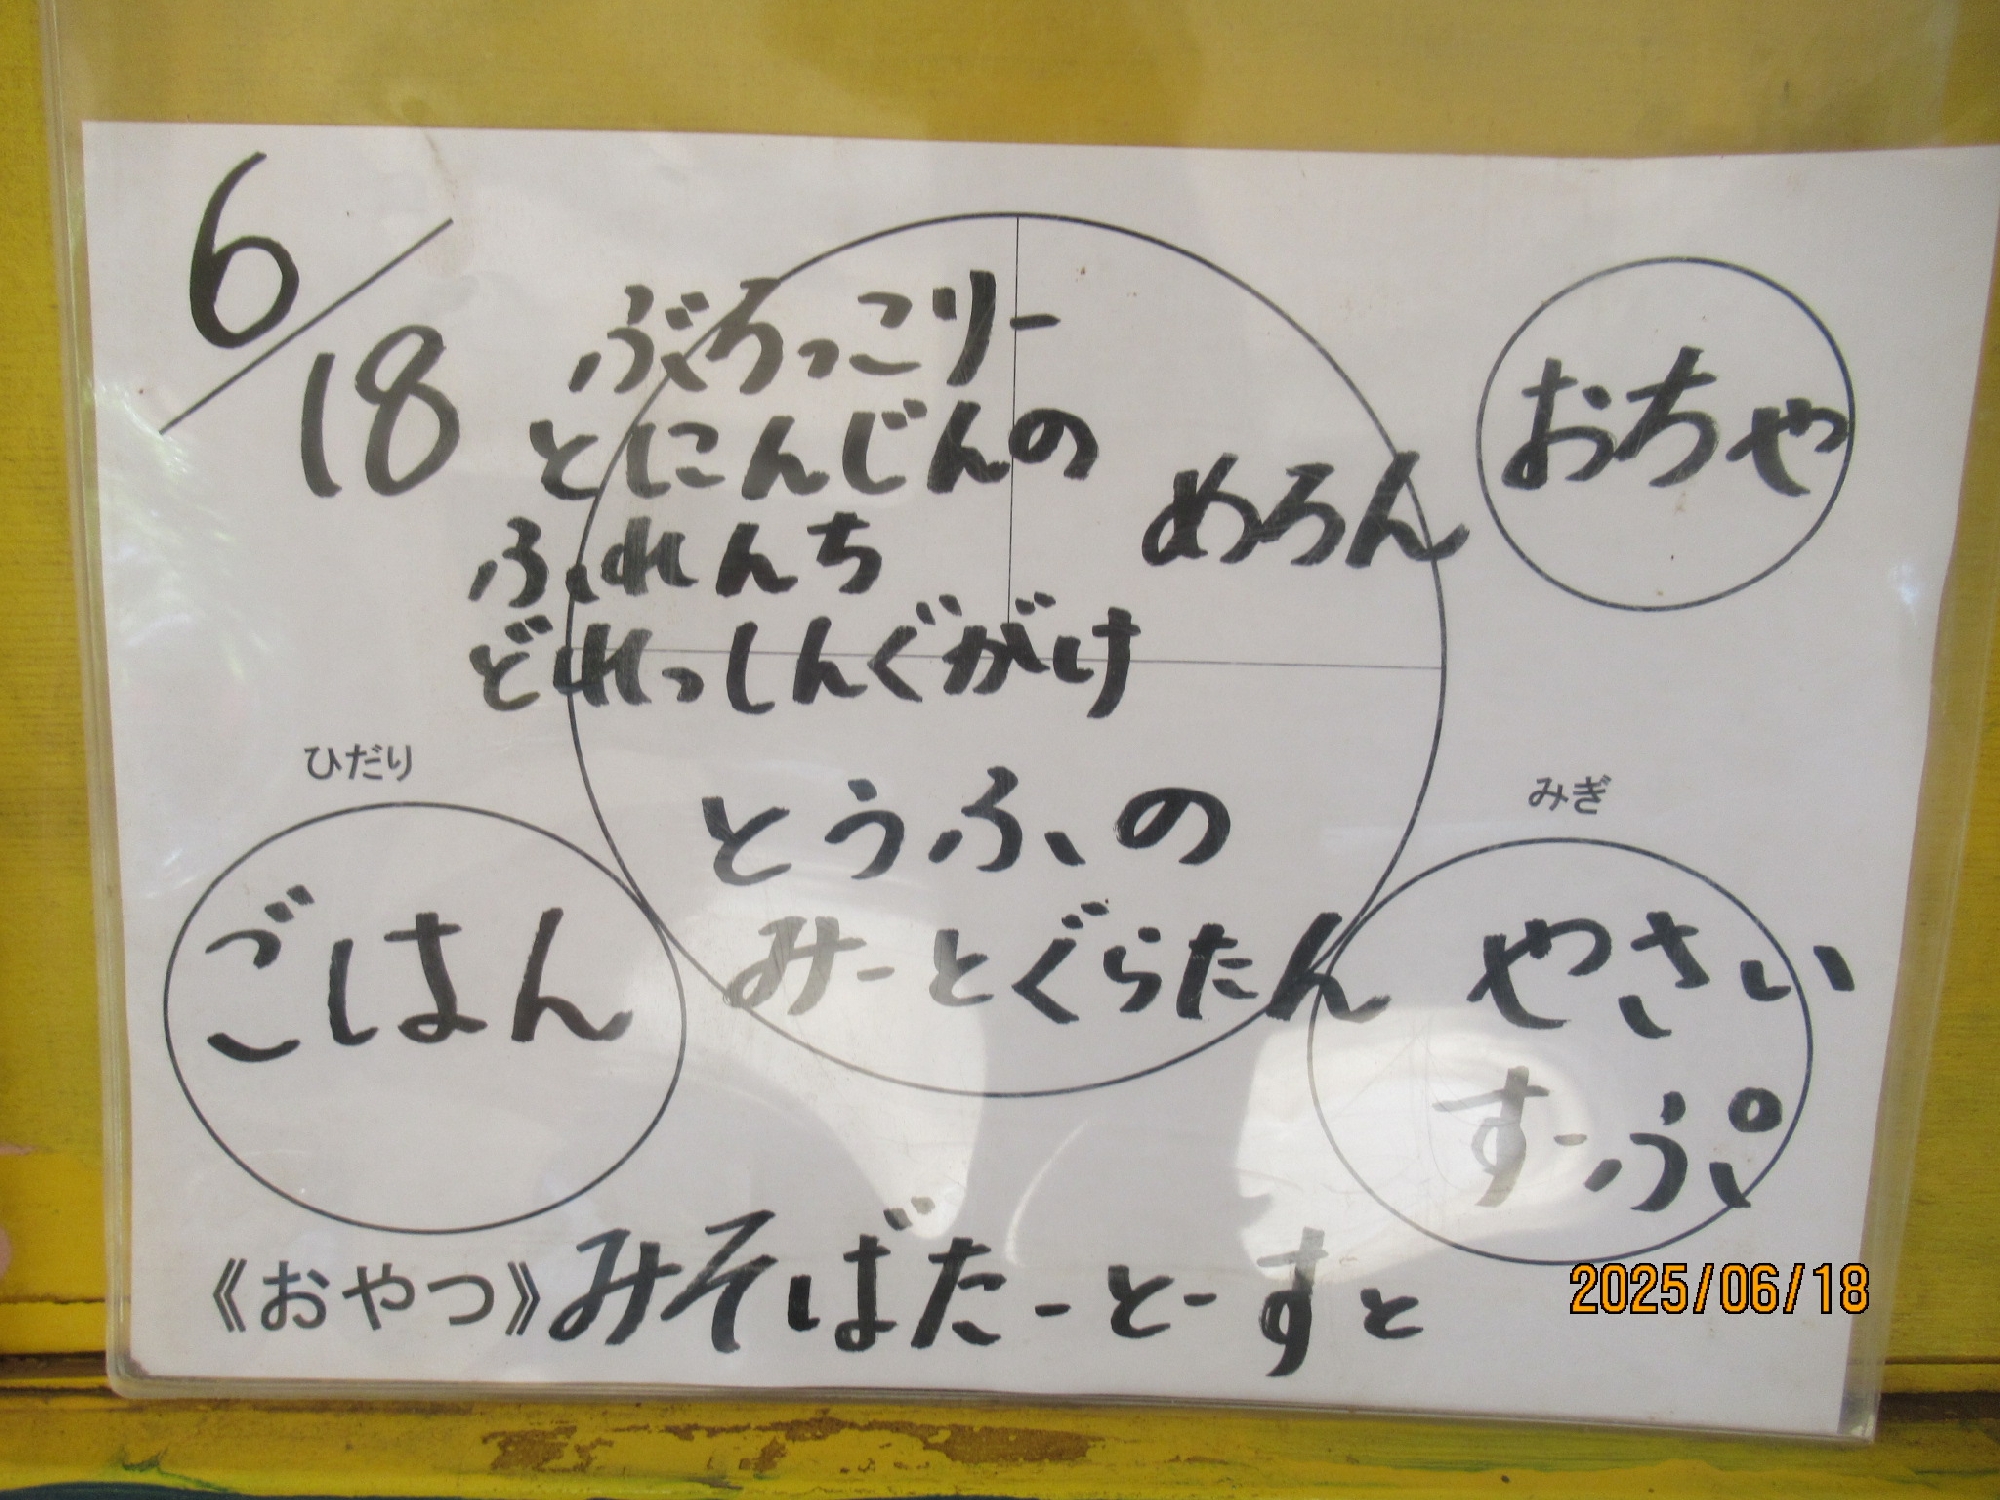 6/18
ぶろっこりー
とにんじんの
ふれんち
どれっしんぐがけ
めろん
おちゃ
ひだり
ごはん
とうふの
みーとぐらたん
みぎ
やさい
すーぷ
《おやつ》みそばたーとーすと
2025/06/18